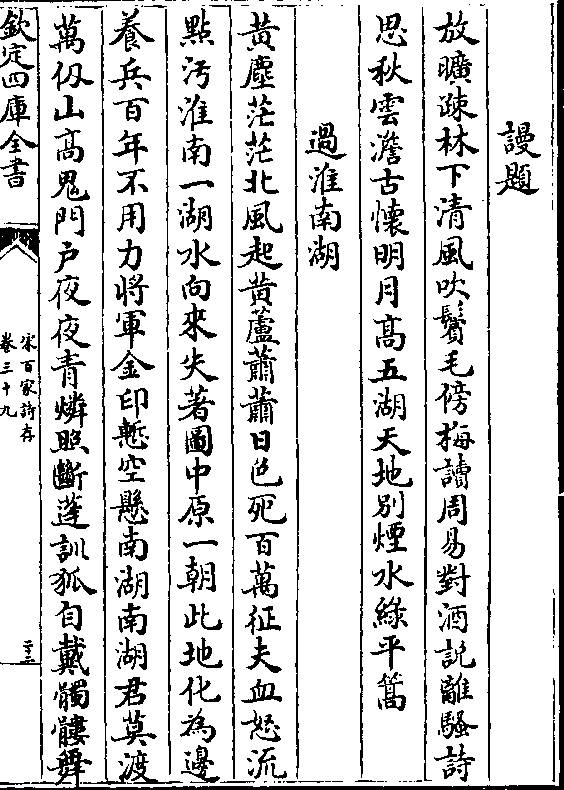 謾題
放曠疎林下清風吹鬢毛傍梅讀周易對酒説離騷詩
思秋雲澹古懷明月高五湖天地别煙水綠平篙
過淮南湖
黄塵茫茫北風起黄蘆蕭蕭日色死百萬征夫血怒流
點汚淮南一湖水向來失著圖中原一朝此地化為邊
養兵百年不用力將軍金印慙空懸南湖南湖君莫渡
萬仭山髙鬼門户夜夜青燐照斷蓬訓狐自戴髑髏舞
欽定四庫全書
宋百家詩存
卷三十九